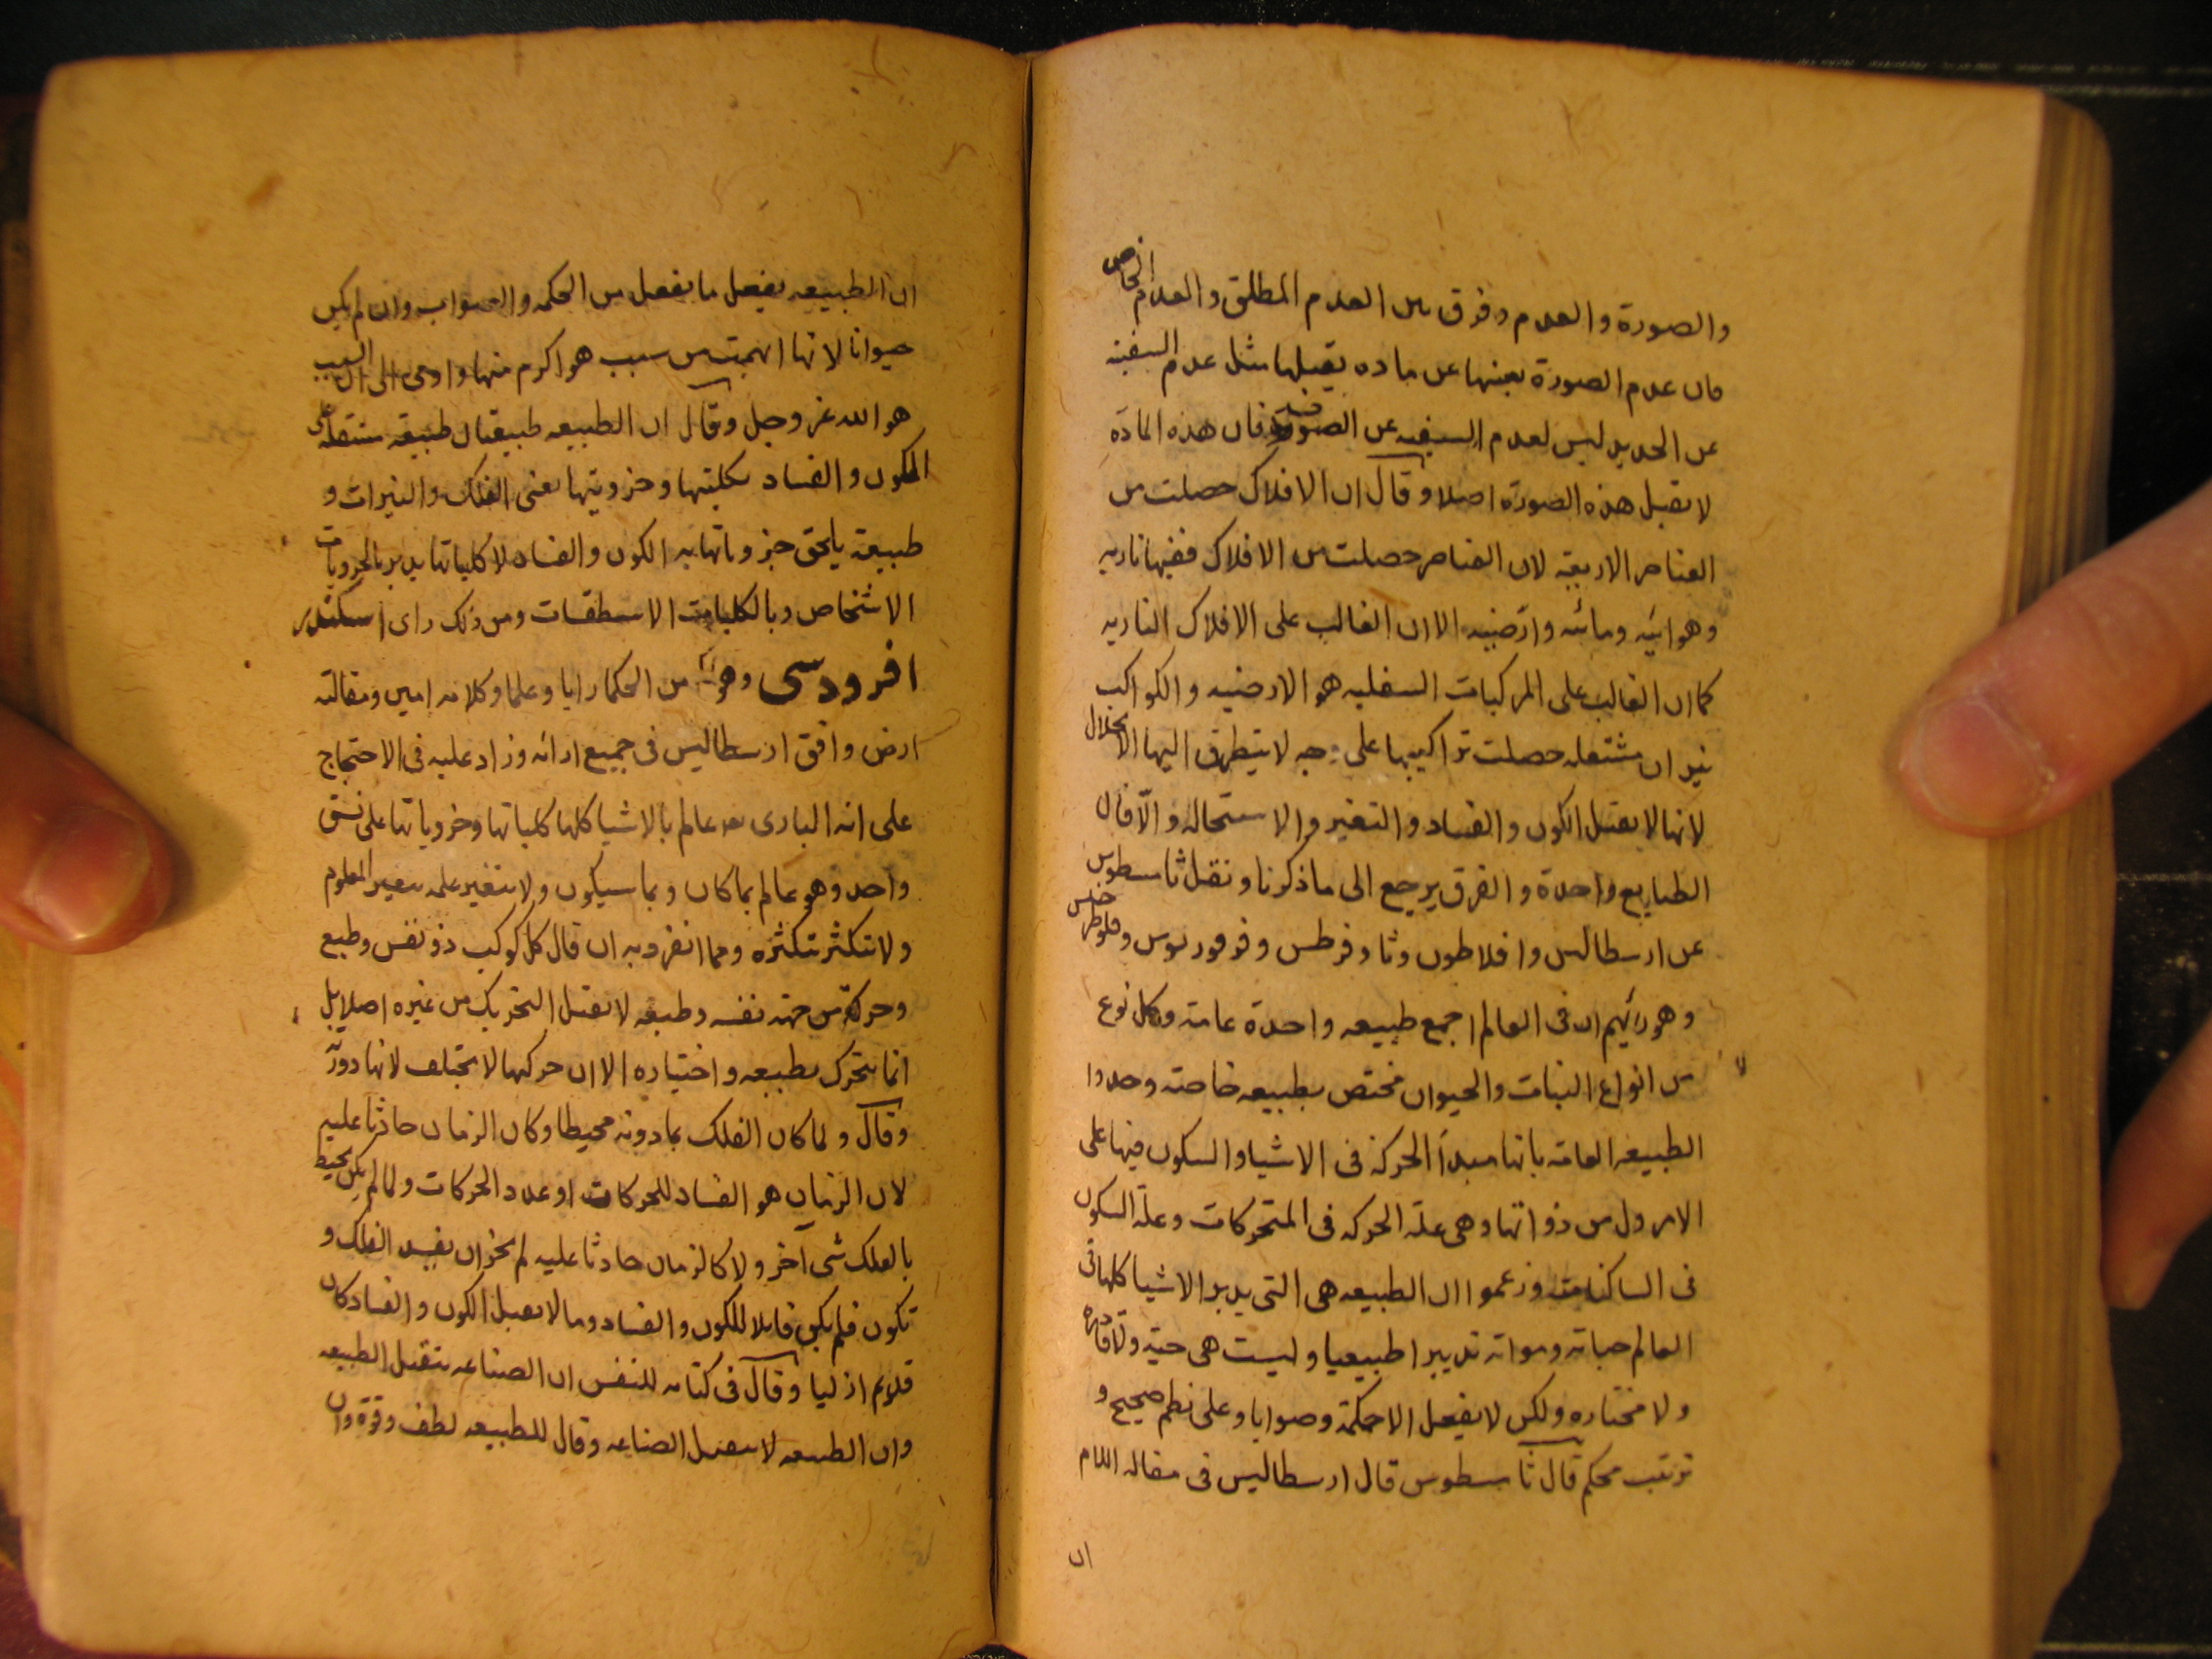 والصورة والعدم وفرق بين العدم المطلق والعدم الخاص
فان عدم الصورة بعينها عن مادة يقبلها مثل عدم السيفية
عن الحديد ليس لعدم السيفيه عن الصوف فان هذه المادة
لا يقبل هذه الصورة اصلا وقال ان الافلاك حصلت من
العناصر الاربعة لان العناصر حصلت من الافلاك ففيها نارية
وهوائية ومائية وارضيه الا ان الغالب على الافلاك الناريه
كما ان الغالب على المركبات السفليه هو الارضيه والكواكب
نيران مشتعله حصلت تراكيبها على وجه لا يتطرق اليها الانحلال
لانها لا يقبل الكون والفساد والتغير والاستحاله والا فان
الطبايع واحدة والفرق يرجع الى ما ذكرنا ونقل ثامسطوس
عن ارسطاليس وافلاطون وثاوفرطس وفرفوريوس وفلوطرخس
وهو رأيهم ان فى العالم اجمع طبيعه واحدة عامة وكل نوع
من انواع النبات والحيوان مختص بطبيعه خاصته وحدوا
الطبيعه العامة بانها مبدأ الحركة فى الاشيا والسكون فيها على
الامر ول من ذواتها وهى علة الحركه فى المتحركات وعلة السكون
فى الساكنات وزعموا ان الطبيعه هى التى يدبر الاشيا كلها فى
العالم حياته ومواته تدبيرا طبيعيا وليست هى حية ولا قادرة
ولا مختاره ولكن لا يفعل الا حكمة وصوابا وعلى نظم صحيح و
ترتيب محكم قال ثامسطوس قال ارسطاليس فى مقاله اللام
ان
ان الطبيعه يفعل ما يفعل من الحكمه والصواب وان لم يكن
حيوانا لانها الهمت من سبب هو اكرم منها واومى الى ان السبب
هو الله عز وجل وقال ان الطبيعه طبيعتان طبيعة مستعلية على
الكون والفساد بكليتها وجزويتها يعنى الفلك والنيرات و
طبيعة يلحق جزوياتها به الكون والفساد لا كلياتها يريد بالجزويات
الاشخاص وبالكليات الاسطقسات ومن ذلك راى اسكندر
افرودسى وهو من الحكما رايا وعلما وكلامه امين ومقالته
ارض وافق ارسطاليس فى جميع ارائه وزاد عليه فى الاحتجاج
على انه البارى تعه عالم بالاشيا كلها كلياتها وجزوياتها على نسق
واحد وهو عالم بما كان وبما سيكون ولا يتغير علمه بتغير المعلوم
ولا يتكثر بتكثره ومما انفرد به ان قال كل كوكب ذو نفس وطبع
وحركة من جهة نفسه وطبعه لا يقبل التحريك من غيره اصلا بل
انما يتحرك بطبعه واختياره الا ان حركتها لا يختلف لانها دورية
وقال ولما كان الفلك بما دونه محيطا وكان الزمان حادثا عليه
لان الزمان هو الفساد للحركات او عدد الحركات ولما لم يكن يحيط
بالفلك شى آخر ولا كالزمان حادثا عليه لم يجز ان يفسد الفلك و
تكون فلم يكن قابلا للكون والفساد وما لا يقبل الكون والفساد كان
قديم ازليا وقال فى كتابه للنفس ان الصناعه يتقبل الطبيعه
وان الطبيعه لا يتقبل الصناعه وقال للطبيعه لطف وقوة وان